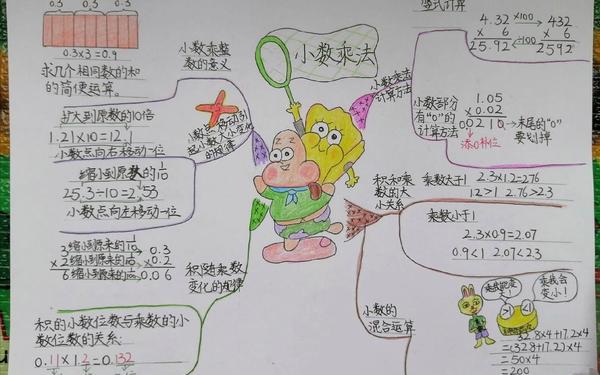 小数乘法
0.3 0.3 0.3
0.3×3=0.9
求几个相同数的和
的简便运算。
小数乘整
数的意义
扩大到原数的10倍
1.21×10=12.1
小数点向右移动一位
缩小到原数的1/10
25.3÷10=2.53
小数点向左移动一位
小数点移动引
起小数大小变化
的规律
3缩小到原来的1/10 0.3
×2缩小到原来的1/10 ×0.2
6缩小到原来的 0.06
积随乘数
变化的规律
积的小数位数与乘数的小
数位数的关系
0.11×1.2=0.132
竖式计算
4.32 ×100 432
× 6 × 6
25.92 ÷100 2592
小数乘法
计算方法
小数部分
有"0"的
计算方法
1.05
×0.02
0.0210→末尾的"0"
要划掉
添0补位
积和乘
数的大
小关系
乘数大于1
2.3×1.2=2.76
1.2>1 2.76>2.3
乘数小于1
2.3×0.9=2.07
0.9<1 2.07<2.3
小数的
混合运算
乘我会
变小!
32.8×4+17.2×4
=(32.8+17.2)×4
=50×4
=200